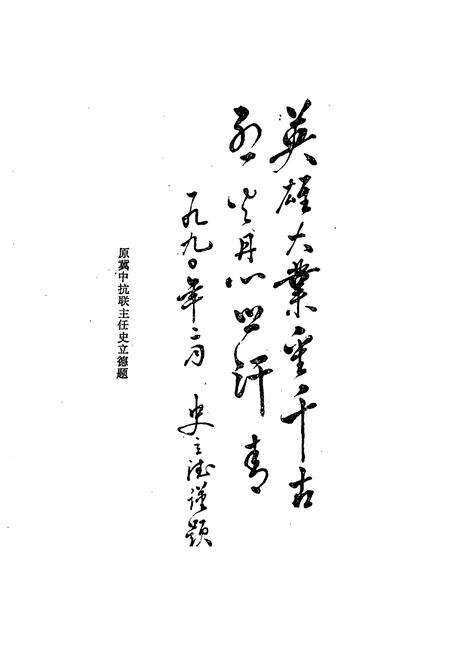 英雄大業垂千古
烈士丹心照汗青
一九九〇年二月 史立德谨题
原冀中抗联主任史立德题